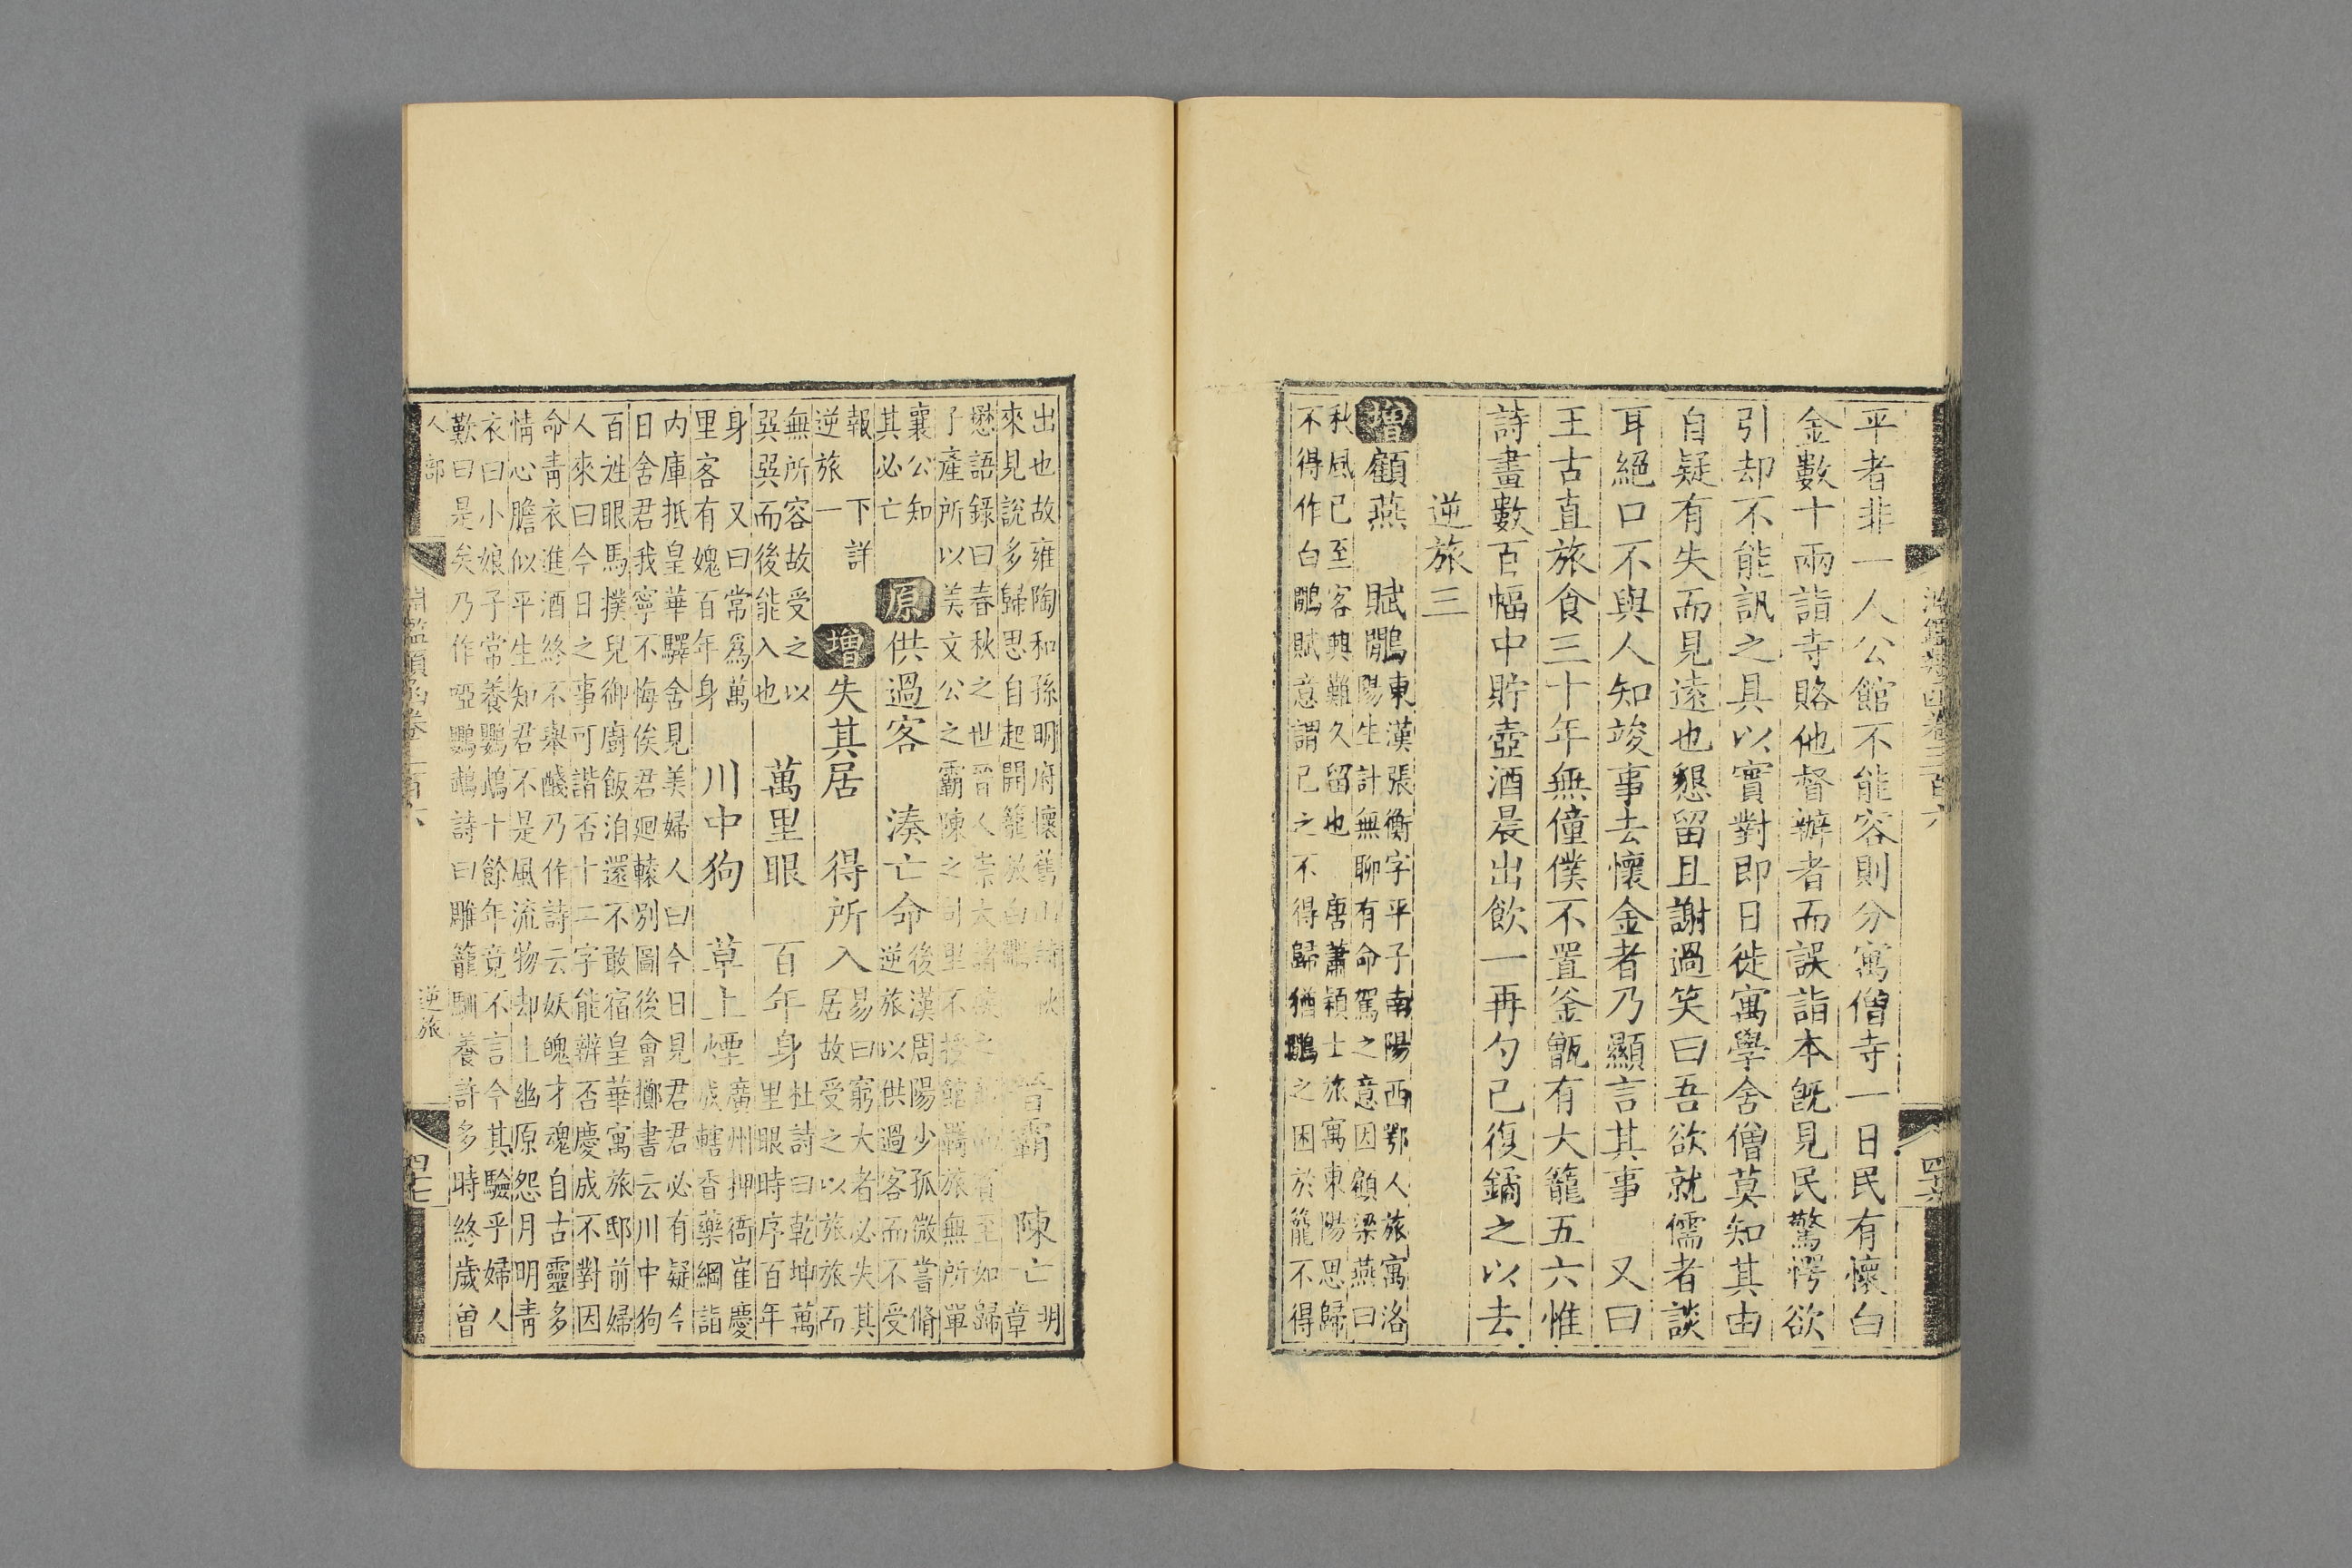 平者非一人公館不能容則分寓僧寺一日民有懷白
金數十兩詣寺賂他督辦者而誤詣本旣見民驚愕欲
引却不能訊之具以實對即日徙寓學舍僧莫知其由
自疑有失而見遠也懇留且謝過笑曰吾欲就儒者談
耳絕口不與人知竣事去懷金者乃顯言其事 又曰
王古直旅食三十年無僮僕不置釜甑有大籠五六惟
詩畫數百幅中貯壺酒晨出飲一再勺已復鐍之以去
逆旅三
增顧燕 賦鷳東漢張衡字平子南陽西鄂人旅寓洛
陽生計無聊有命駕之意因顧梁燕曰
秋風已至客興難久留也 唐蕭穎士旅寓東陽思歸
不得作白鷳賦意謂己之不得歸猶鷳之困於籠不得
出也故雍陶和孫明府懷舊山詩秋
來見說多歸思自起開籠放白鷳 晉霸 陳亡 明
章
懋語錄曰春秋之世晉人崇大諸侯之館賓至如歸
子產所以美文公之霸陳之司里不授館羈旅無所單
襄公知
其必亡 原供過客 湊亡命後漢周陽少孤微嘗脩
逆旅以供過客而不受
報 下詳
逆旅一 增失其居 得所入易曰窮大者必失其
居故受之以旅旅而
無所容故受之以
巽巽而後能入也 萬里眼 百年身杜詩曰乾坤萬
里眼時序百年
身 又曰常爲萬
里客有媿百年身 川中狗 草上煙廣州押衙崔慶
成轄香藥綱詣
內庫抵皇華驛舍見美婦人曰今日見君君必有疑今
日舍君我寧不悔俟君廻轅別圖後會擲書云川中狗
百姓眼馬撲兒御廚飯洎還不敢宿皇華寓旅邸前婦
人來曰今日之事可諧否十二字能辨否慶成不對因
命靑衣進酒終不舉醆乃作詩云妖魄才魂自古靈多
情心膽似平生知君不是風流物却上幽原怨月明靑
衣曰小娘子常養鸚鵡十餘年竟不言今其驗乎婦人
歎曰是矣乃作啞鸚鵡詩曰雕籠馴養許多時終歲曾
人部
逆旅
四七